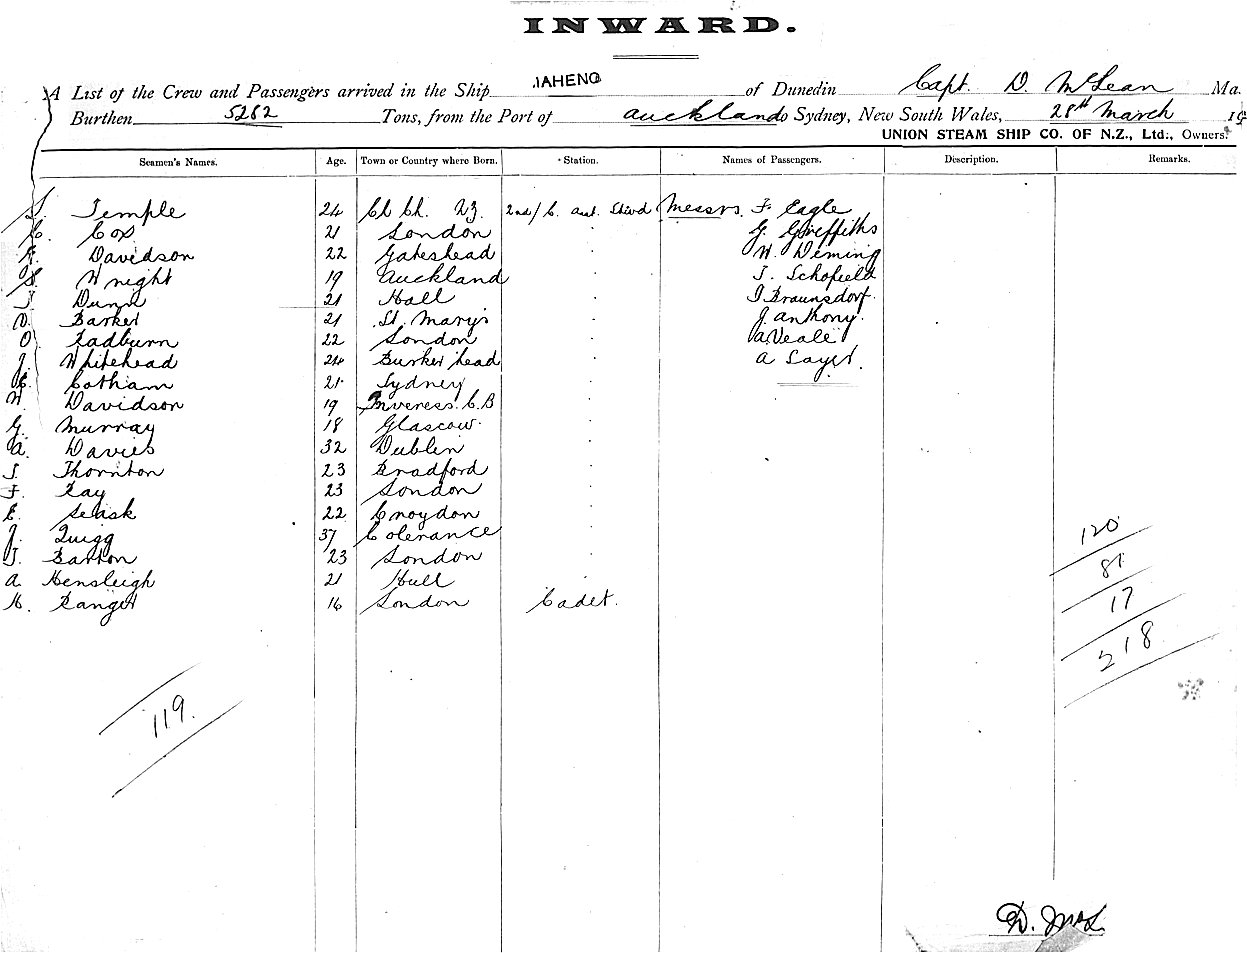 INWARD.
A List of the Crew and Passengers arrived in the Ship IAHENO of Dunedin Capt. D. McLean Ma.
Burthen 5282 Tons, from the Port of Auckland to Sydney, New South Wales, 28th March 19
UNION STEAM SHIP CO. OF N.Z., Ltd., Owners.
Seamen's Names. Age. Town or Country where Born. Station. Names of Passengers. Description. Remarks.
Temple 24 Ch Ch. NZ. 2nd/C. ant. Shivd Messrs F. Eagle
C. Cox 21 London G. Griffiths
Davidson 22 Gateshead W. Deming
Wright 19 Auckland J. Schofield
Dunn 21 Hall Braunsdorf.
D. Barker 21 St. Marys J. Anthony.
O Radburn 22 London A Veale
J. Whitehead 24 Burkenhead A Sayer.
C. Cotham 21 Sydney
W. Davidson 19 Inveress. C.B
G. Murray 18 Glascow.
A. Davies 32 Dublin
Thornton 23 Bradford
F. Ray 23 London
E. Seask 22 Croydon
J. Quigg 37 Colerance
Barton 23 London
A Hensleigh 21 Hull
H. Ranger 16 London Cadet.
120
81
17
218
119.
D. McL.